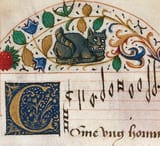 Come ung homm